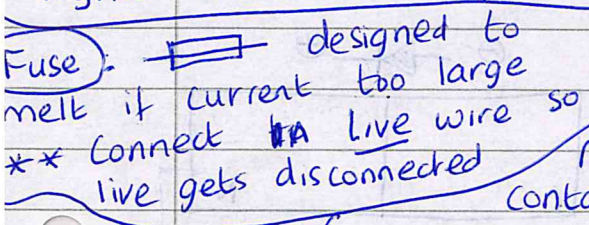 Fuse: designed to
melt if current too large
** Connect to Live wire so
live gets disconnected
conta